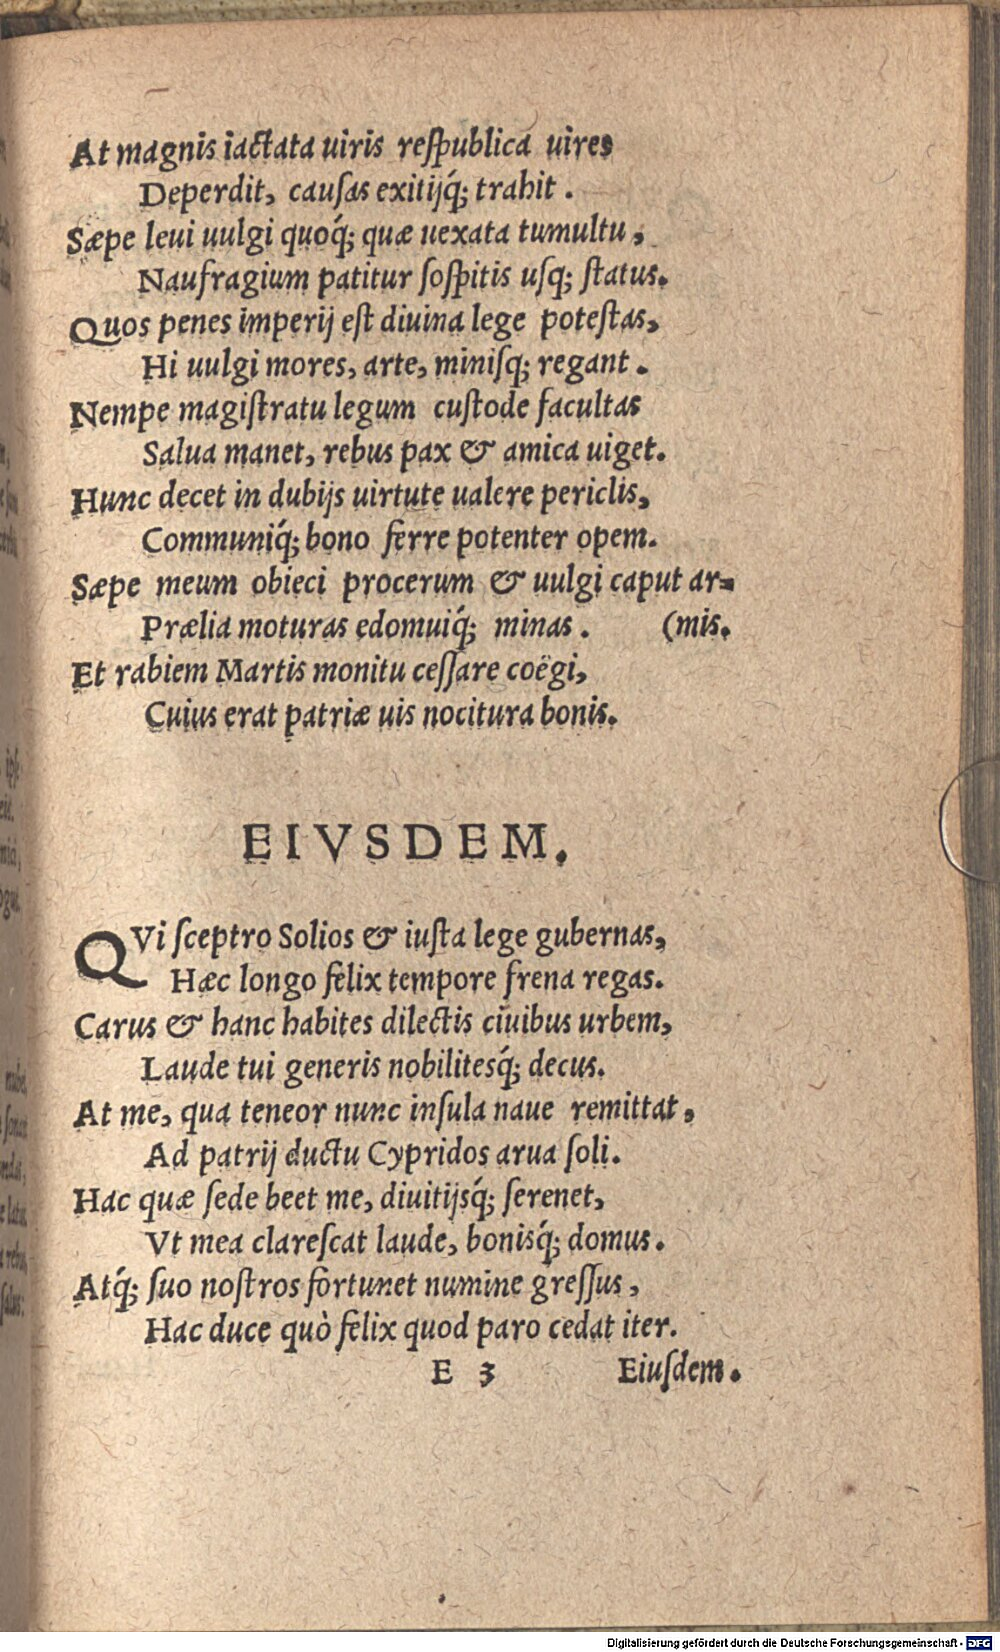 At magnis iactata uiris reſpublica uires
Deperdit, cauſas exitijq́; trahit.
Sæpe leui uulgi quoq́; quæ uexata tumultu,
Naufragium patitur ſoſpitis uſq; ſtatus.
Quos penes imperij eſt diuina lege poteſtas,
Hi uulgi mores, arte, miniſq; regant.
Nempe magiſtratu legum cuſtode facultas
Salua manet, rebus pax & amica uiget.
Hunc decet in dubijs uirtute ualere periclis,
Communiq́; bono ferre potenter opem.
Sæpe meum obieci procerum & uulgi caput ar-
Prælia moturas edomuiq́; minas. (mis.
Et rabiem Martis monitu ceſſare coëgi,
Cuius erat patriæ uis nocitura bonis.
EIVSDEM.
QVi ſceptro Solios & iuſta lege gubernas,
Hæc longo felix tempore frena regas.
Carus & hanc habites dilectis ciuibus urbem,
Laude tui generis nobilitesq́; decus.
At me, qua teneor nunc inſula naue remittat,
Ad patrij ductu Cypridos arua ſoli.
Hac quæ ſede beet me, diuitijsq́; ſerenet,
Vt mea clareſcat laude, bonisq́; domus.
Atq́; ſuo noſtros fortunet numine greſſus,
Hac duce quò felix quod paro cedat iter.
E 3 Eiuſdem.
Digitalisierung gefördert durch die Deutsche Forschungsgemeinschaft - DFG